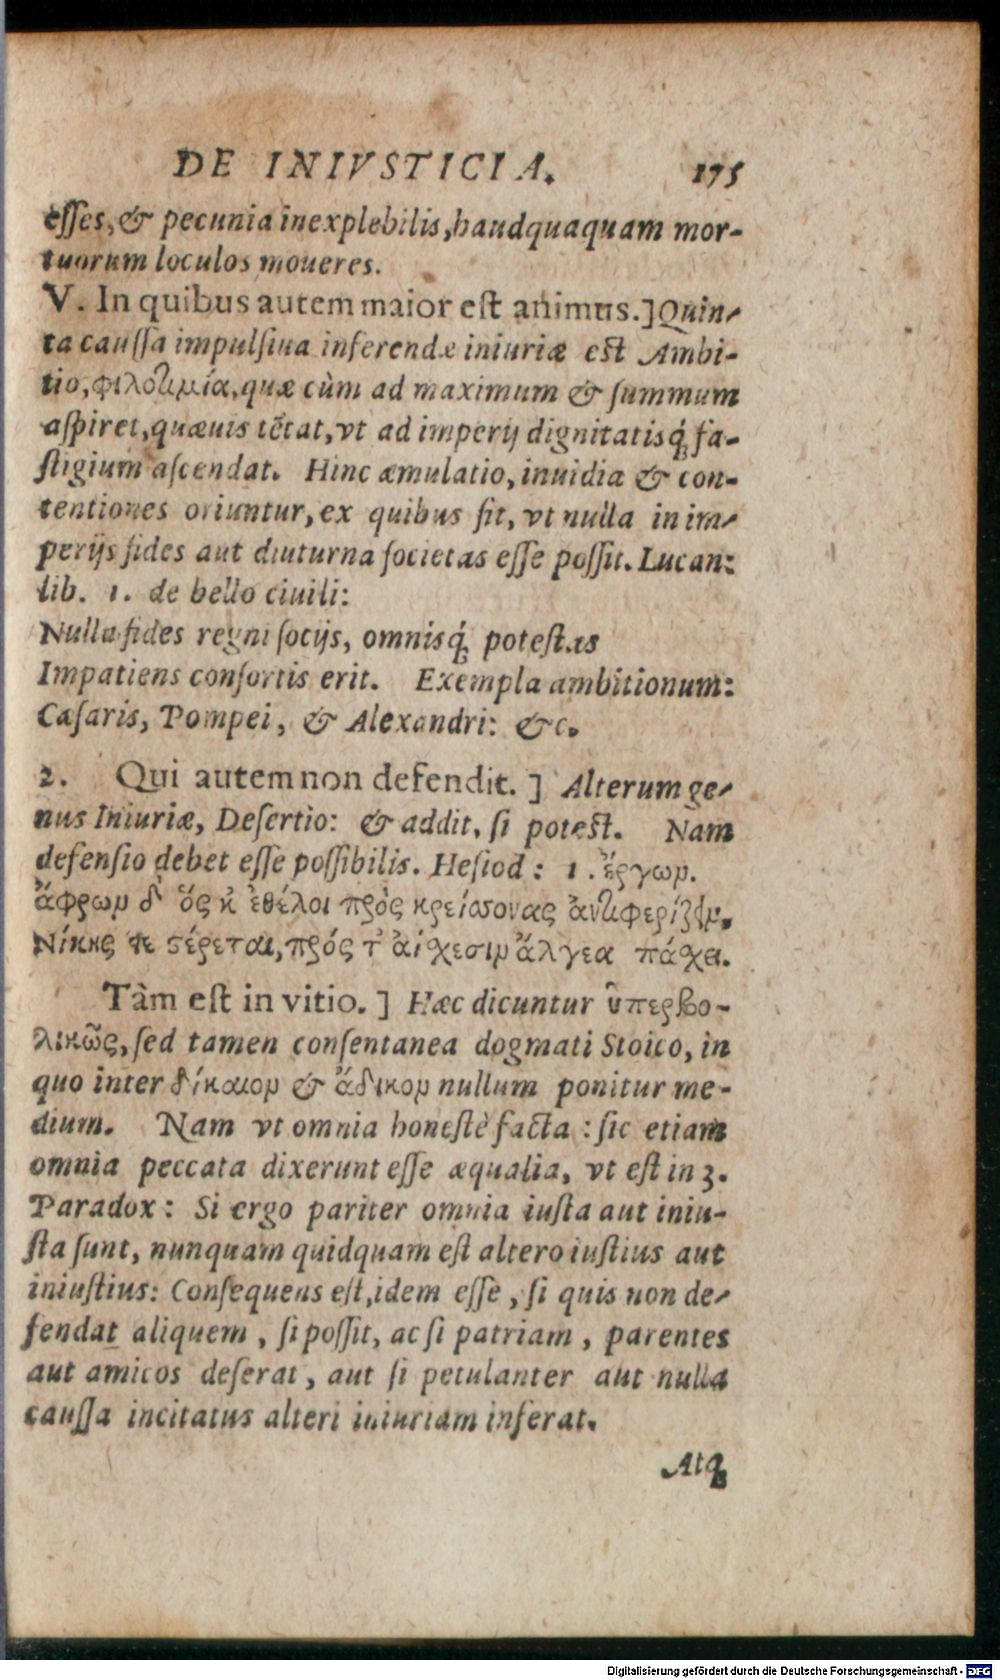 DE INIVSTICIA. 175
esses, & pecunia inexplebilis, haudquaquam mor-
tuorum loculos moueres.
V. In quibus autem maior est animus.] Quin-
ta caussa impulsiua inferendæ iniuriæ est Ambi-
tio, φιλοτιμία, quæ cùm ad maximum & summum
aspiret, quæuis tẽtat, vt ad imperij dignitatisq́; fa-
stigium ascendat. Hinc æmulatio, inuidia & con-
tentiones oriuntur, ex quibus fit, vt nulla in im-
perijs fides aut diuturna societas esse possit. Lucan:
lib. 1. de bello ciuili:
Nulla fides regni socijs, omnisq́; potestas
Impatiens consortis erit. Exempla ambitionum:
Cæsaris, Pompei, & Alexandri: &c.
2. Qui autem non defendit.] Alterum ge-
nus Iniuriæ, Desertio: & addit, si potest. Nam
defensio debet esse possibilis. Hesiod: 1. ἔργων.
ἄφρων δ' ὅς κ' ἐθέλοι πρὸς κρείσσονας ἀντιφερίζειν.
Νίκης τε στέρεται, πρός τ' αἴσχεσιν ἄλγεα πάσχει.
Tàm est in vitio.] Hæc dicuntur ὑπερβο-
λικῶς, sed tamen consentanea dogmati Stoico, in
quo inter δίκαιον & ἄδικον nullum ponitur me-
dium. Nam vt omnia honestè facta: sic etiam
omnia peccata dixerunt esse æqualia, vt est in 3.
Paradox: Si ergo pariter omnia iusta aut iniu-
sta sunt, nunquam quidquam est altero iustius aut
iniustius: Consequens est, idem esse, si quis non de-
fendat aliquem, si possit, ac si patriam, parentes
aut amicos deserat, aut si petulanter aut nulla
caussa incitatus alteri iniuriam inferat.
Atq;
Digitalisierung gefördert durch die Deutsche Forschungsgemeinschaft - DFG